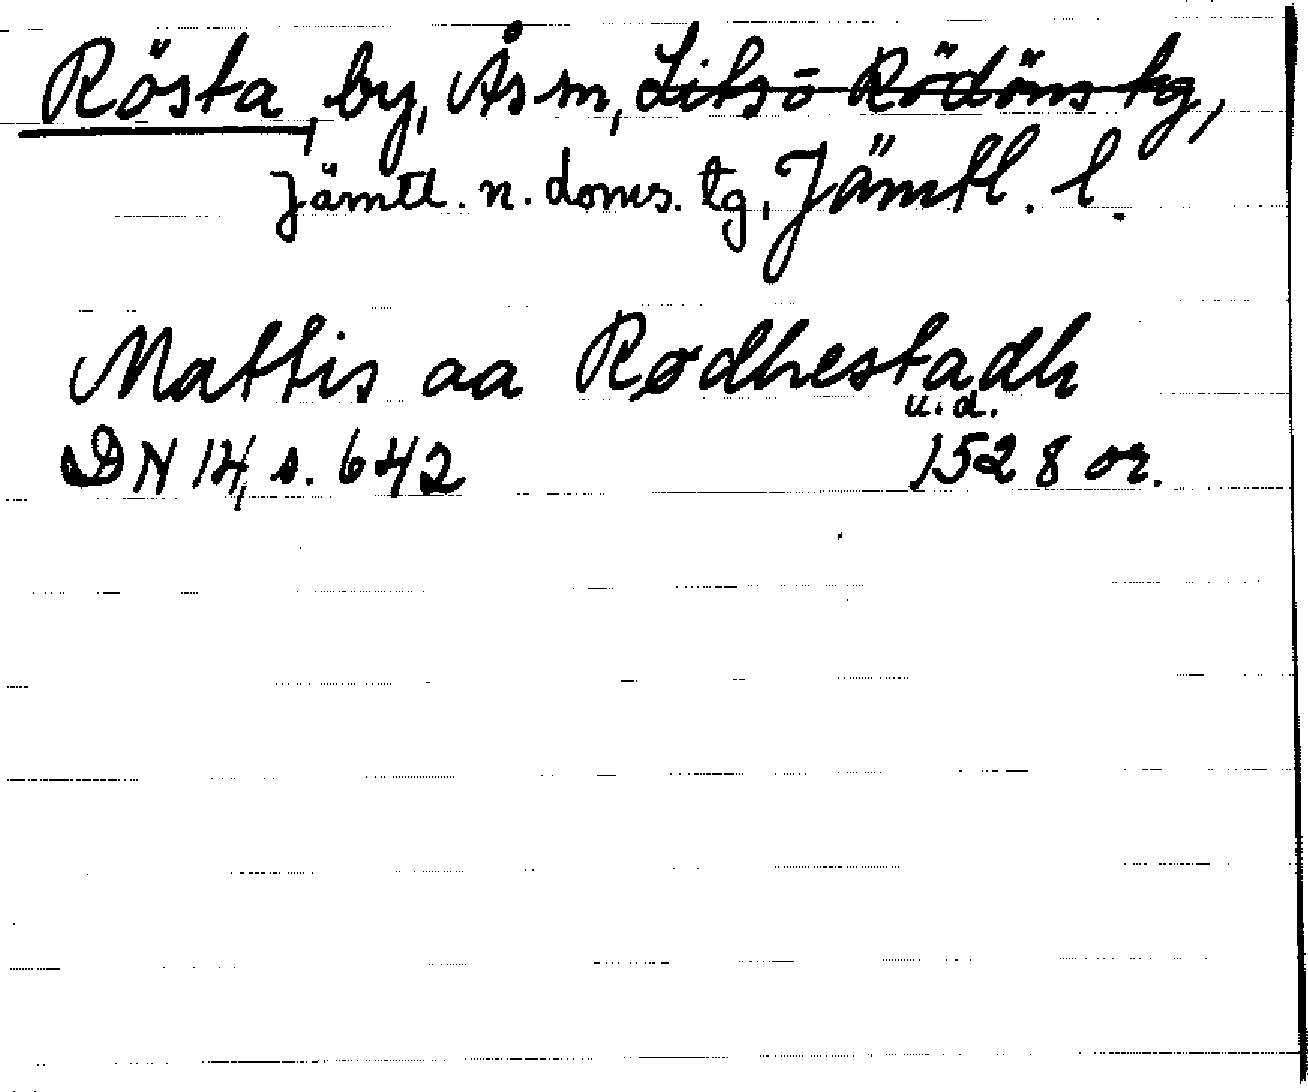 Rösta, by, Ås sn, Lits o Rödöns tg,
Jämtl. n. doms. tg, Jämtl. l.
Mattis aa Rødhestadh
u.d.
DN 14, s. 642 1528 or.